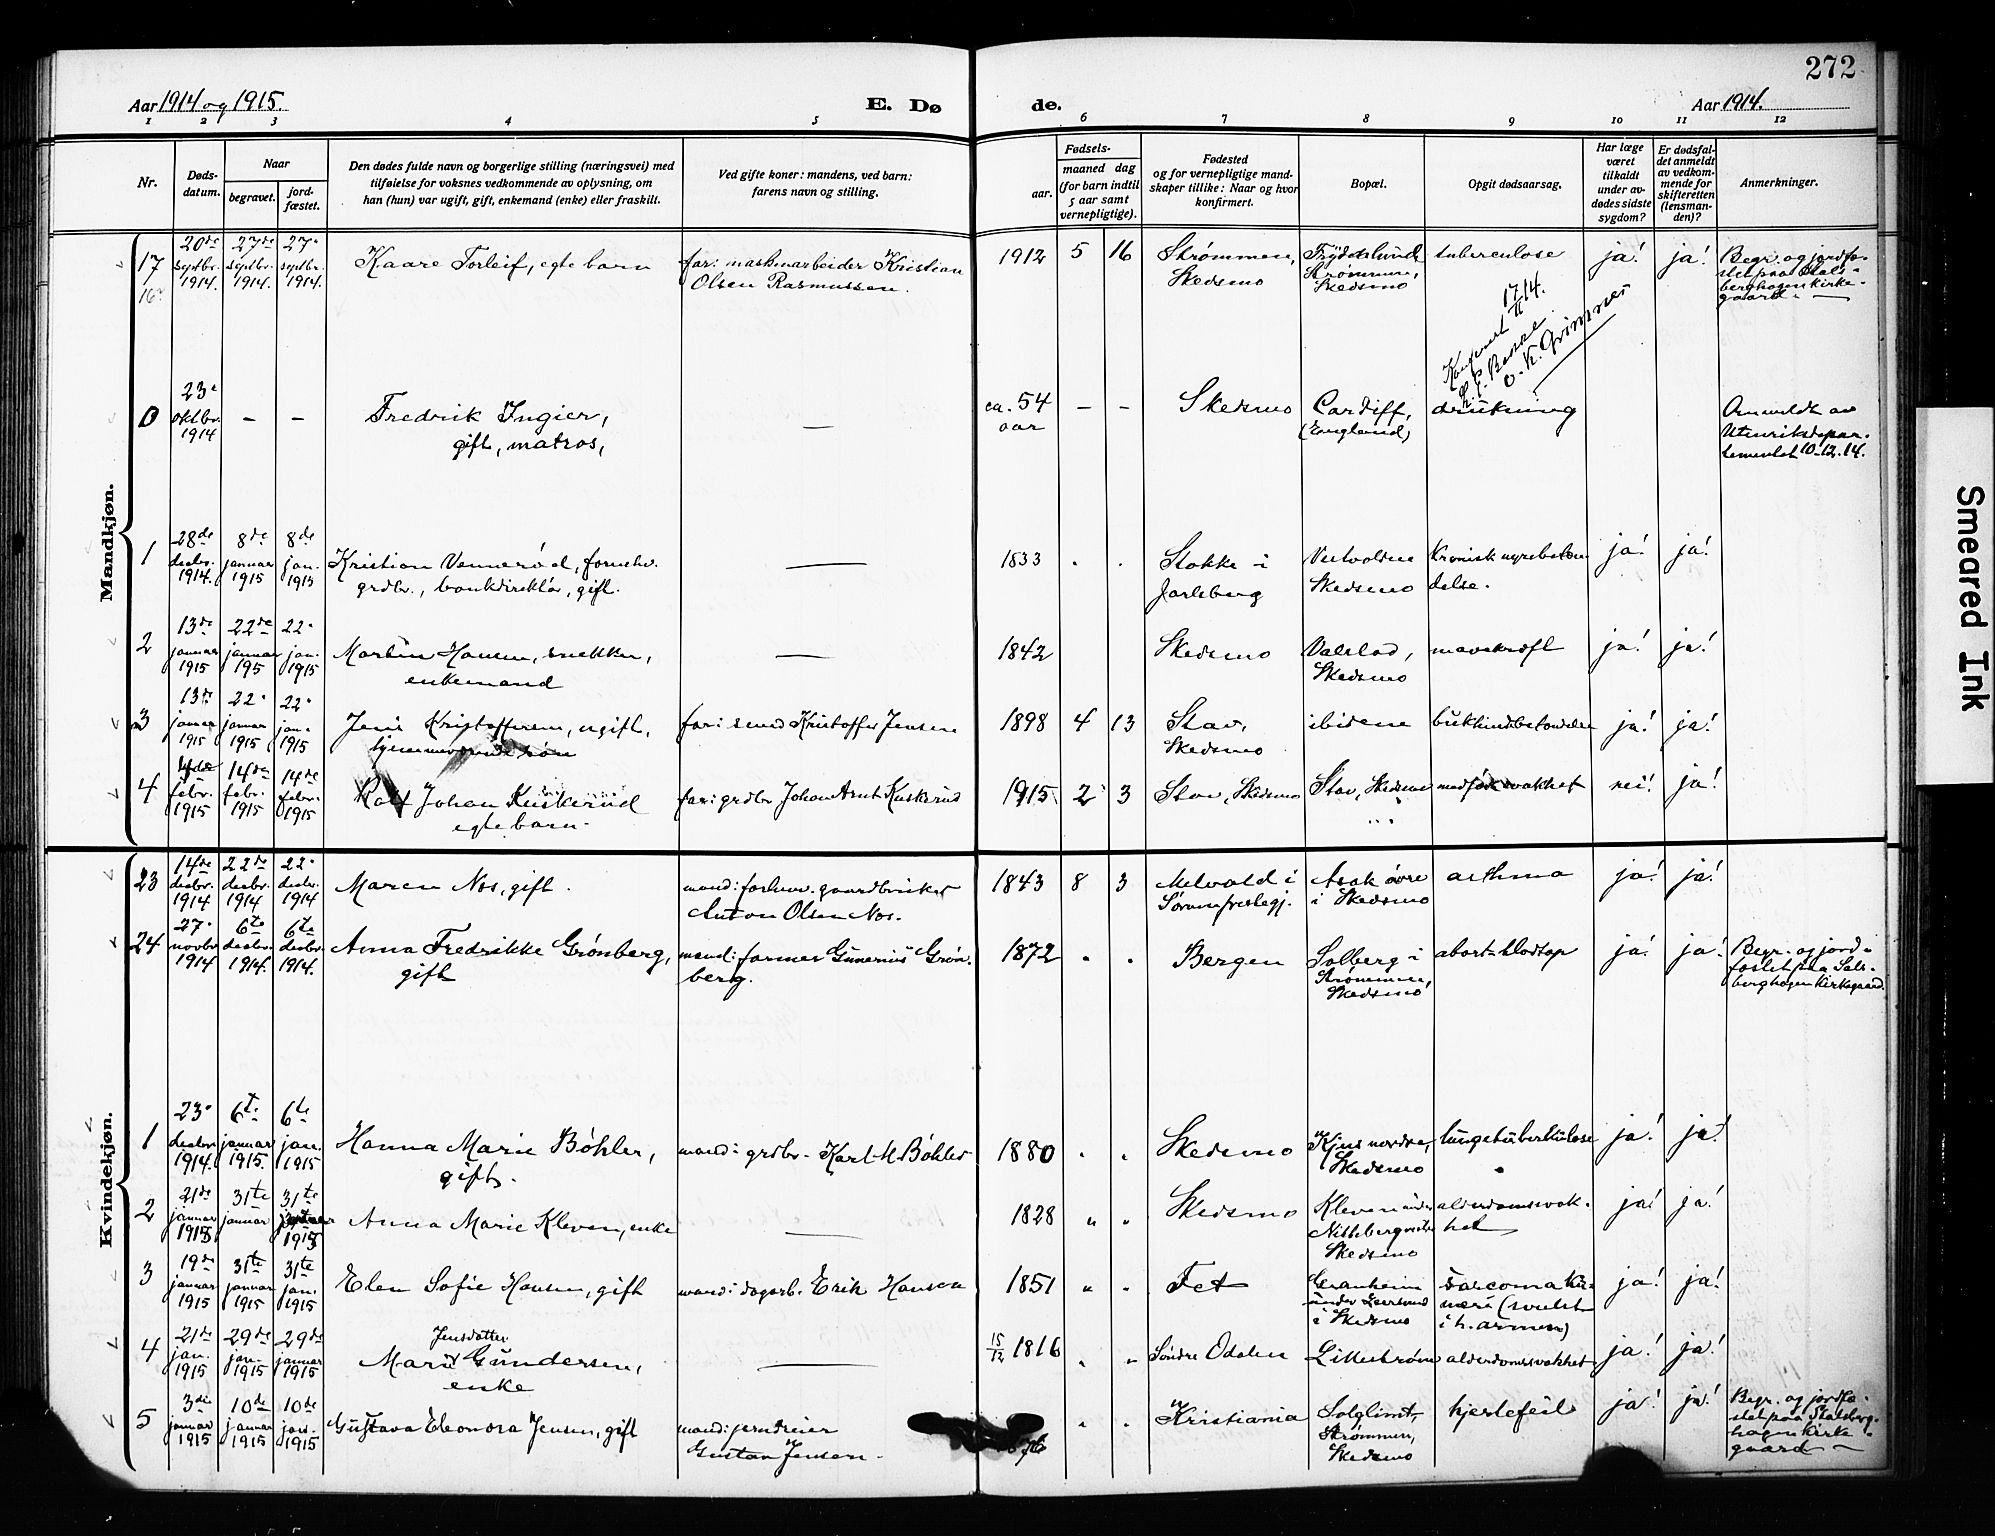 272
Aar 1914 og 1915.
E. Dø
de.
Aar 1914.
1 2 3 4 5 6 7 8 9 10 11 12
Nr.
Døds-
datum.
Naar
begravet.
jord-
fæstet.
Den dødes fulde navn og borgerlige stilling (næringsvei) med
tilføielse for voksnes vedkommende av oplysning, om
han (hun) var ugift, gift, enkemand (enke) eller fraskilt.
Ved gifte koner: mandens, ved barn:
farens navn og stilling.
Fødsels-
aar.
maaned dag
(for barn indtil
5 aar samt
vernepligtige).
Fødested
og for vernepligtige mand-
skaper tillike: Naar og hvor
konfirmert.
Bopæl.
Opgit dødsaarsag.
Har læge
været
tilkaldt
under av-
dødes sidste
sygdom?
Er dødsfal-
det anmeldt
av vedkom-
mende for
skifteretten
(lensman-
den)?
Anmerkninger.
Mandkjøn.
17
16
20de
septbr.
1914.
27de
septbr.
1914.
27
septbr.
1914.
Kaare Torleif, egte barn
far: maskinarbeider Kristian
Olsen Rasmussen.
1912 5 16
Strømmen,
Skedsmo
Strømmen,
Skedsmo
tuberculose
ja! ja!
Begr. og jordfæ-
stet paa Stals-
berghagen kirke-
gaard.
17/11 14.
O. K. Grimnes
0
23
oktbr.
1914
– –
Fredrik Ingier,
gift, matros,
—
ca. 54
aar
– –
Skedsmo
Cardiff,
(England)
drukning
Anmeldt av
Utenriksdepar-
tementet 10-12-14.
1
28de
desbr.
1914.
8de
januar
1915
8de
jan.
1915
Kristian Vennerød, forhv.
grdbr., bankdirektør, gift.
—
1833
Stokke i
Jarlsberg
Vestvolden
Skedsmo
Kronisk nyrebeten
delse.
ja! ja!
2
13de
januar
1915
22de
januar
195
22
jan.
1915
Martin Hansen, snekker,
enkemand
—
1842
Skedsmo
Valstad,
Skedsmo
mavekræft
ja! ja!
3
13de
januar
1915
22
januar
1915
22
jan.
1915
Jens Kristoffersen, ugift,
far: smed Kristoffer Jensen
1898 4 13
Stav,
Skedsmo
ibidem
bukhindebetændelse
ja! ja!
4
febr.
1915
14de
febr.
1915
14de
febr.
1915
Rolf Johan Kuskerud
egte barn.
far: grdbr Johan Arnt Kuskerud
1915 2 3
Stav, Skedsmo
Stav, Skedsmo
medfødt svakhet
nei! ja!
Kvindekjøn.
23
14de
desbr.
1914
22de
desbr.
1914
22
desbr.
1914
Maren Nos, gift.
mand: forhenv. gaardbruker
Anton Olsen Nos.
1843 8 3
Melvold i
Sørum prestegj.
Asak øvre
i Skedsmo
asthma
ja! ja!
24
27
novbr
1914
6te
desbr.
1914.
6te
desbr.
1914.
Anna Fredrikke Grønberg,
gift
mand: former Gunerius Grøn-
berg.
1872 " "
Bergen
Solberg i
Strømmen,
Skedsmo
abort-blodtap
ja! ja!
Begr. og jord-
fæstet paa Stals-
berghagen kirkegaard.
1
23
desbr
1914.
6te
januar
1915.
6te
jan.
1915
Hanna Marie Bøhler,
gift.
mand: grdbr. Karl M Bøhler
1880 " "
Skedsmo
Kjus nordre,
Skedsmo
lungetuberkulose
ja! ja!
2
21de
januar
1915
31te
januar
31te
1915
Anna Marie Kleven, enke
—
1828 " "
Skedsmo
Kleven under
Nitteberg vestre
Skedsmo
alderdomssvak-
het
ja! ja!
3
19de
januar
1915
31te
januar
1915
31te
jan.
1915
Elen Sofie Hansen, gift
mand: dagarb. Erik Hansen
1851 " "
Fet
Granheim
under Leirsund
i Skedsmo
Sarcoma hu-
meri (svulst
i h. armen)
ja! ja!
4
21de
jan.
1915
29de
jan.
1915
29de
januar
1915
Jensdatter
Mari Gundersen,
enke
—
15/12 1816 " "
Søndre Odalen
Lillestrøm
alderdomssvakhet
ja! ja!
5
3die
januar
1915
10de
januar
1915
10de
jan.
1915
Gustava Eleonora Jensen, gift
mand: jerndreier
Gustav Jensen.
" "
Kristiania
Solglimt,
Strømmen,
Skedsmo
hjertefeil
ja! ja!
Begr. og jordfæ-
stet paa Stalsberg-
hagen kirke-
gaard
Smeared Ink